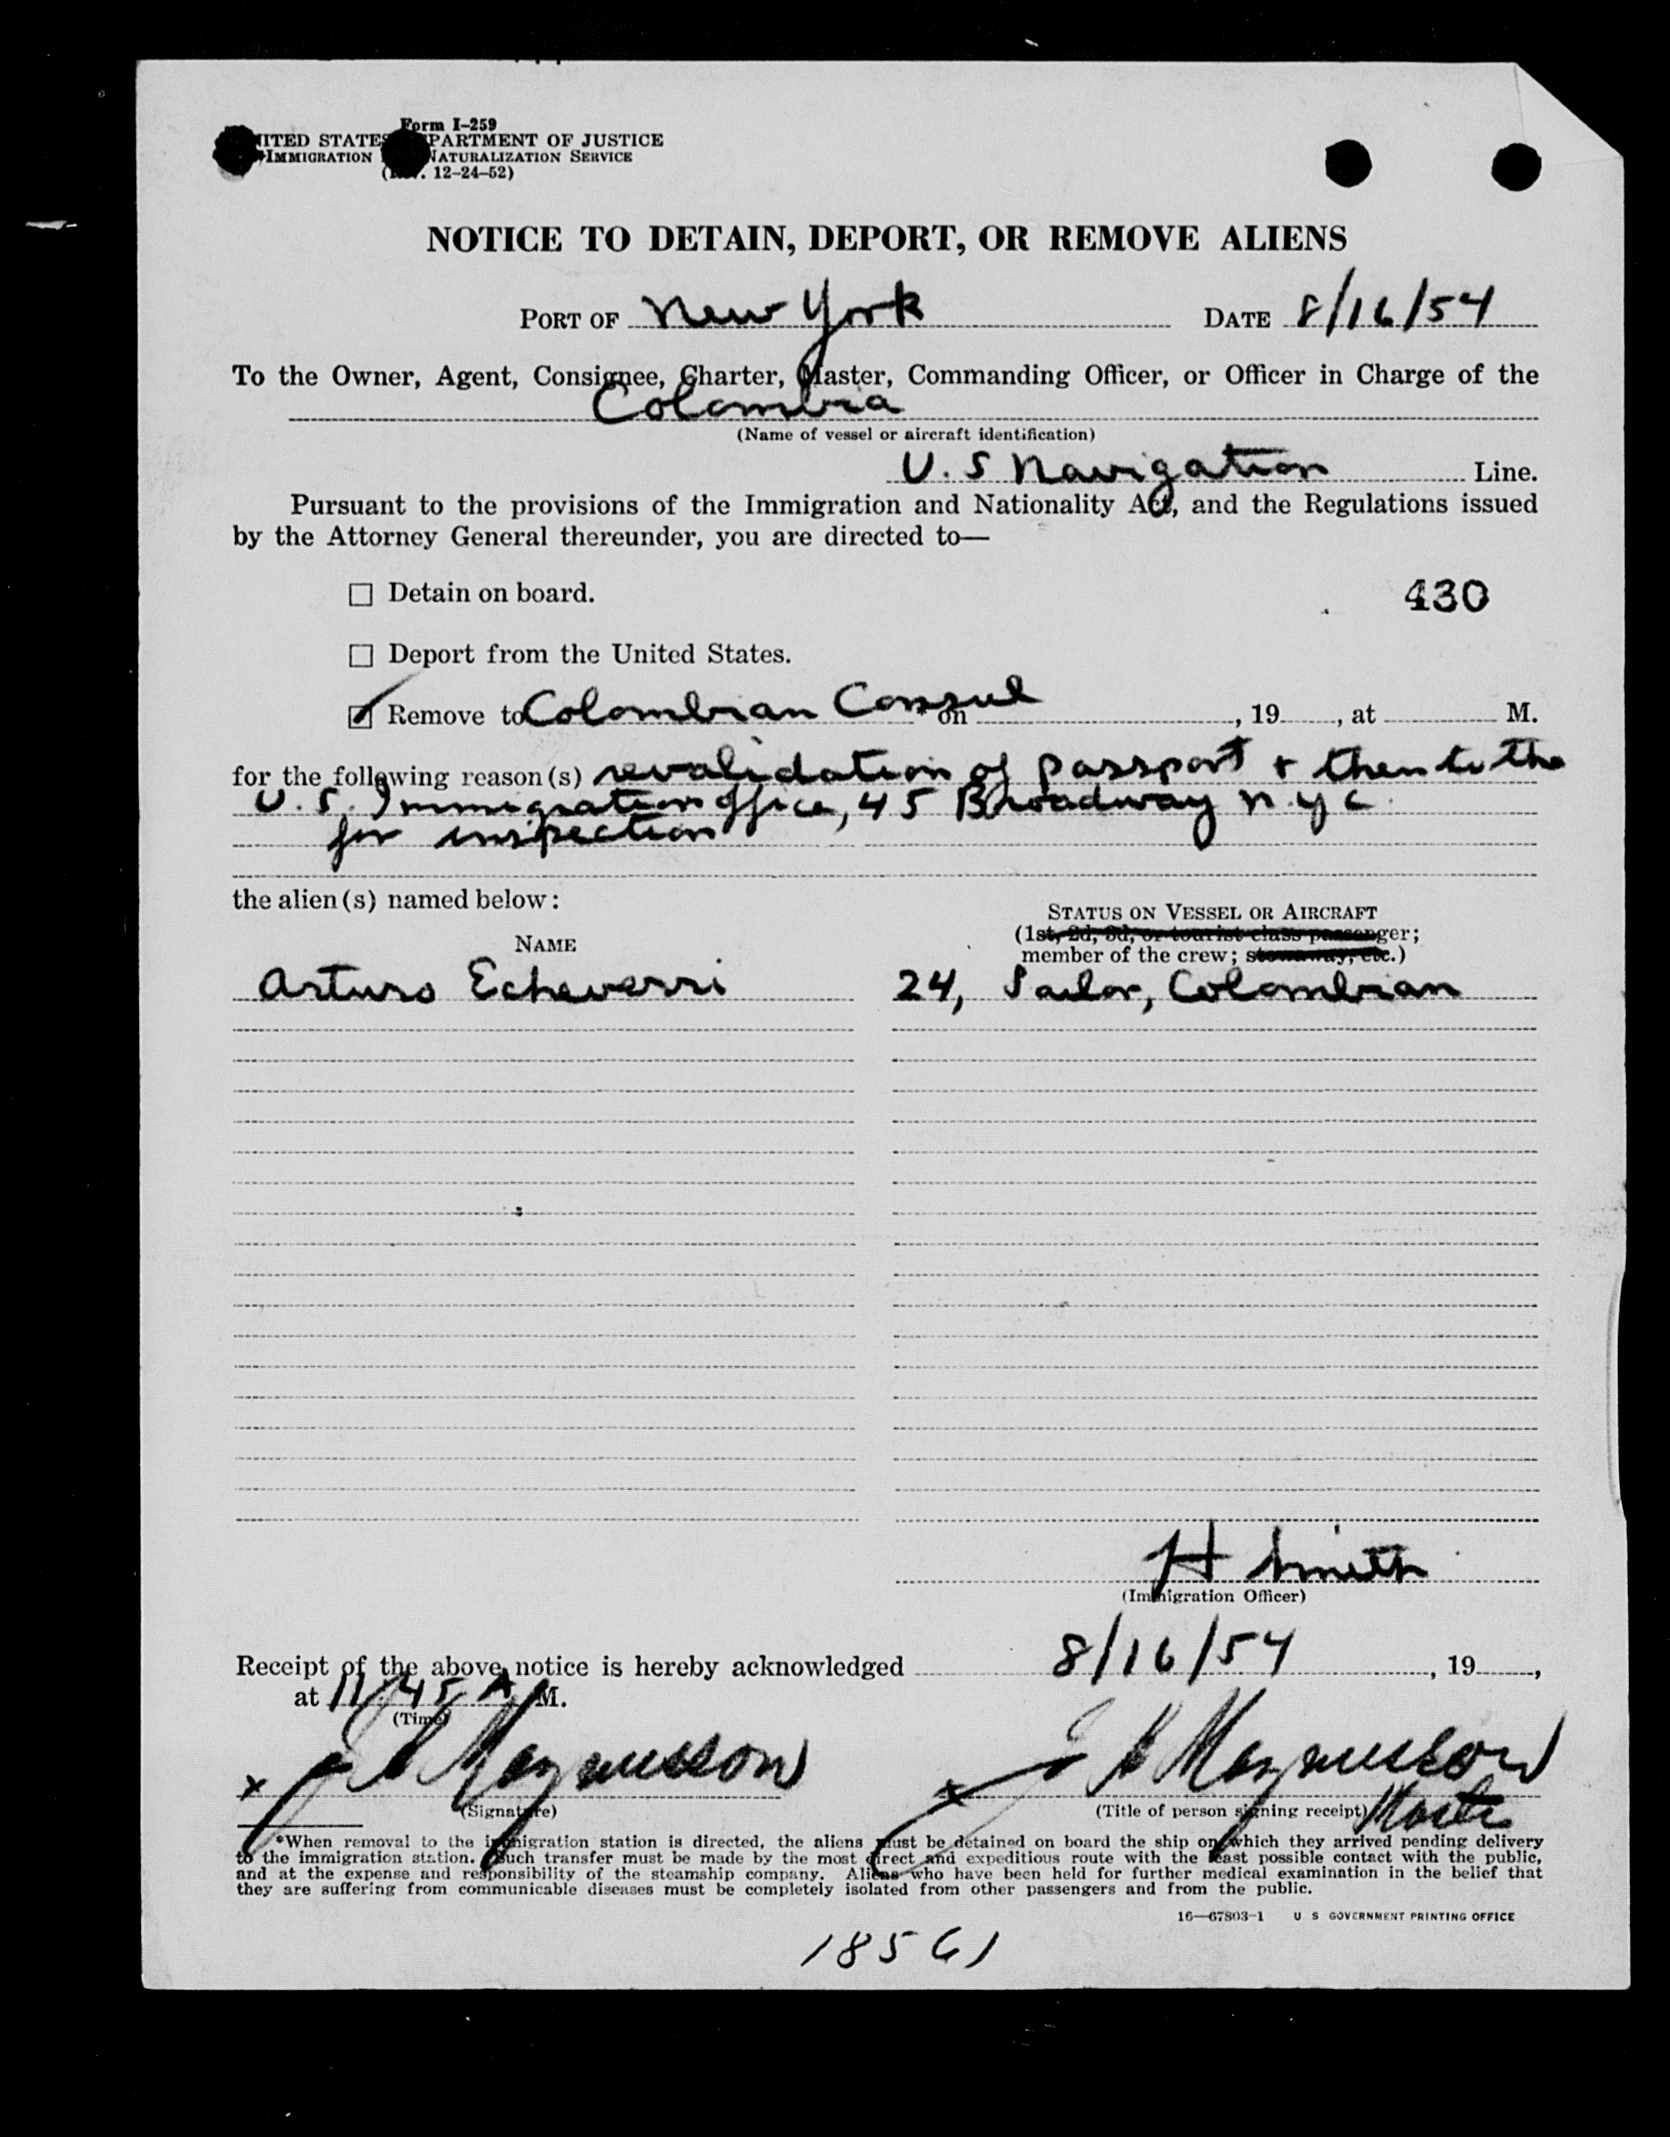 Form I-259
UNITED STATES DEPARTMENT OF JUSTICE
IMMIGRATION NATURALIZATION SERVICE
(Rev. 12-24-52)
NOTICE TO DETAIN, DEPORT, OR REMOVE ALIENS
PORT OF New York DATE 8/16/54
To the Owner, Agent, Consignee, Charter, Master, Commanding Officer, or Officer in Charge of the
Colombia
(Name of vessel or aircraft identification)
U.S Navigation Line.
Pursuant to the provisions of the Immigration and Nationality Act, and the Regulations issued
by the Attorney General thereunder, you are directed to—
☐ Detain on board.
430
☐ Deport from the United States.
☑ Remove to Colombian Consul * on , 19 , at M.
for the following reason(s) revalidation of passport + then to the
U.S. Immigration office, 45 Broadway N.Y.C.
for inspection
the alien(s) named below:
STATUS ON VESSEL OR AIRCRAFT
(1st, 2d, 3d, or tourist class passenger;
NAME
member of the crew; stowaway, etc.)
Arturo Echeverri 24, Sailor, Colombian
H Smith
(Immigration Officer)
Receipt of the above notice is hereby acknowledged 8/16/54, 19 ,
at 11/45 A M.
(Time)
x J A Magnusson x J A Magnusson
(Signature) (Title of person signing receipt) Master
*When removal to the immigration station is directed, the aliens must be detained on board the ship on which they arrived pending delivery
to the immigration station. Such transfer must be made by the most direct and expeditious route with the least possible contact with the public,
and at the expense and responsibility of the steamship company. Aliens who have been held for further medical examination in the belief that
they are suffering from communicable diseases must be completely isolated from other passengers and from the public.
16—67803-1 U S GOVERNMENT PRINTING OFFICE
18561